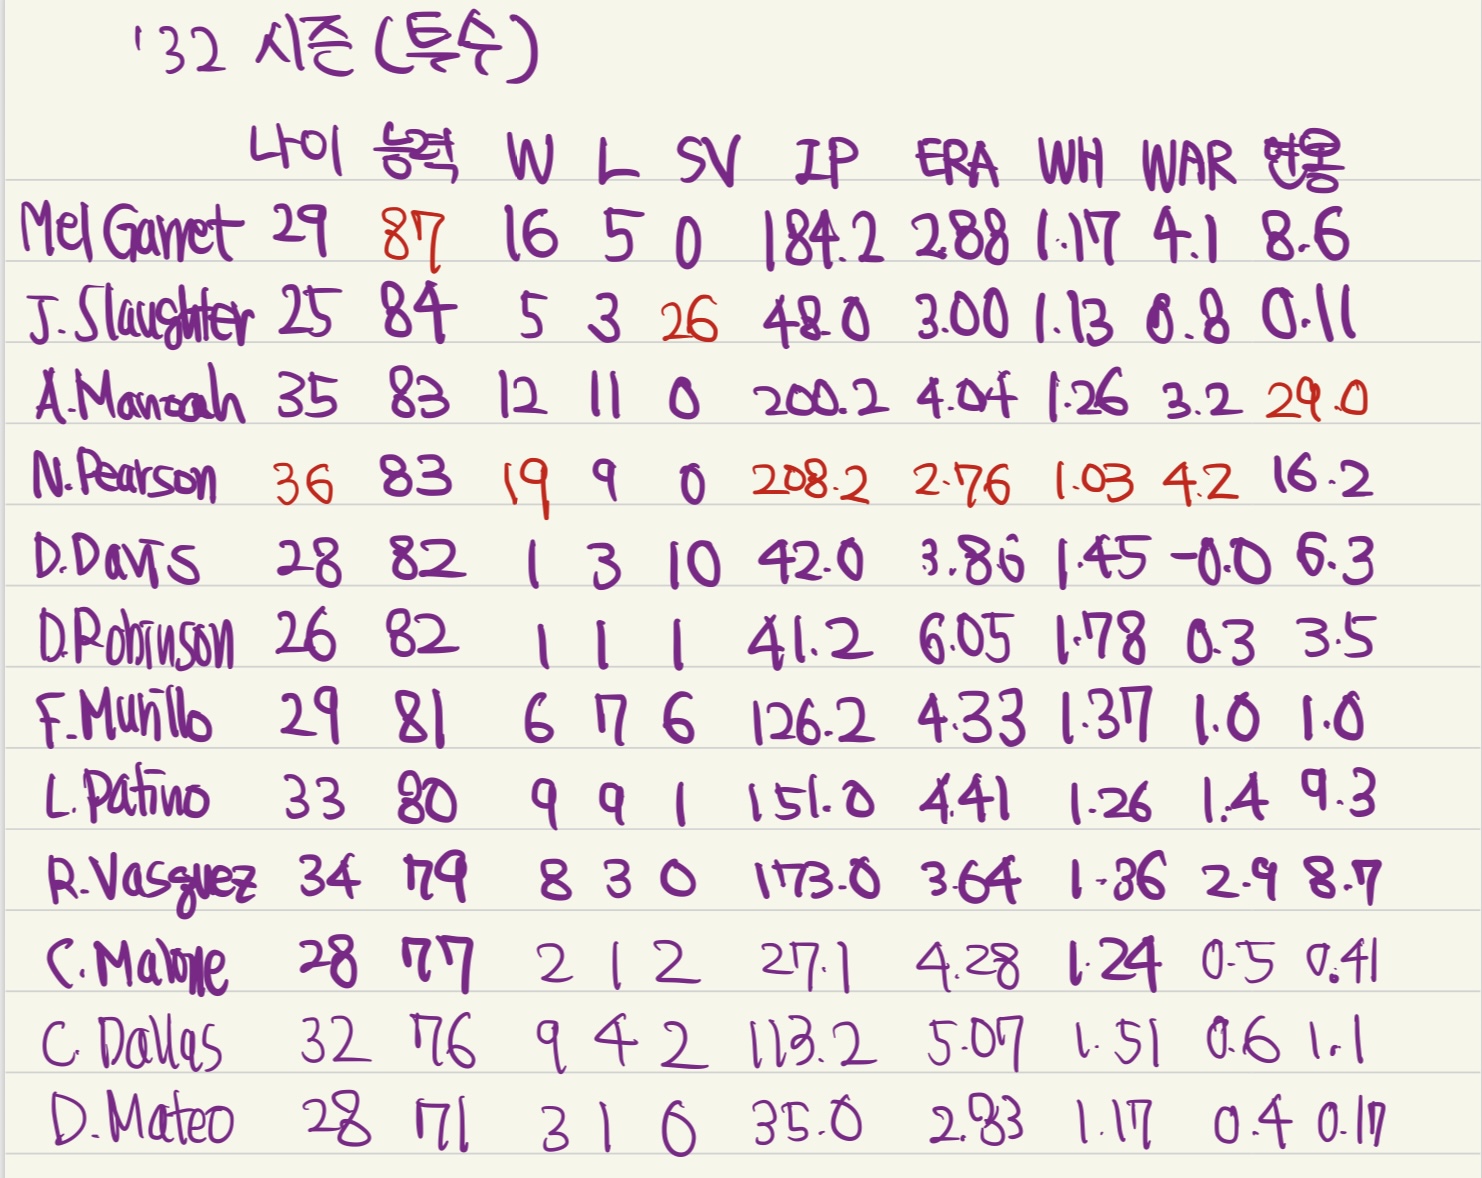 '32 시즌 (투수)
나이 능력 W L SV IP ERA WH WAR 연봉
Mel Garret 29 87 16 5 0 184.2 2.88 1.17 4.1 8.6
J.Slaughter 25 84 5 3 26 48.0 3.00 1.13 0.8 0.11
A.Manoah 35 83 12 11 0 200.2 4.04 1.26 3.2 29.0
N.Pearson 36 83 19 9 0 208.2 2.76 1.03 4.2 16.2
D.Davis 28 82 1 3 10 42.0 3.86 1.45 -0.0 6.3
D.Robinson 26 82 1 1 1 41.2 6.05 1.78 0.3 3.5
F.Murillo 29 81 6 7 6 126.2 4.33 1.37 1.0 1.0
L.Patino 33 80 9 9 1 151.0 4.41 1.26 1.4 9.3
R.Vasquez 34 79 8 3 0 173.0 3.64 1.36 2.9 8.7
C.Malone 28 77 2 1 2 27.1 4.28 1.24 0.5 0.41
C.Dallas 32 76 9 4 2 113.2 5.07 1.51 0.6 1.1
D.Mateo 28 71 3 1 0 35.0 2.83 1.17 0.4 0.17